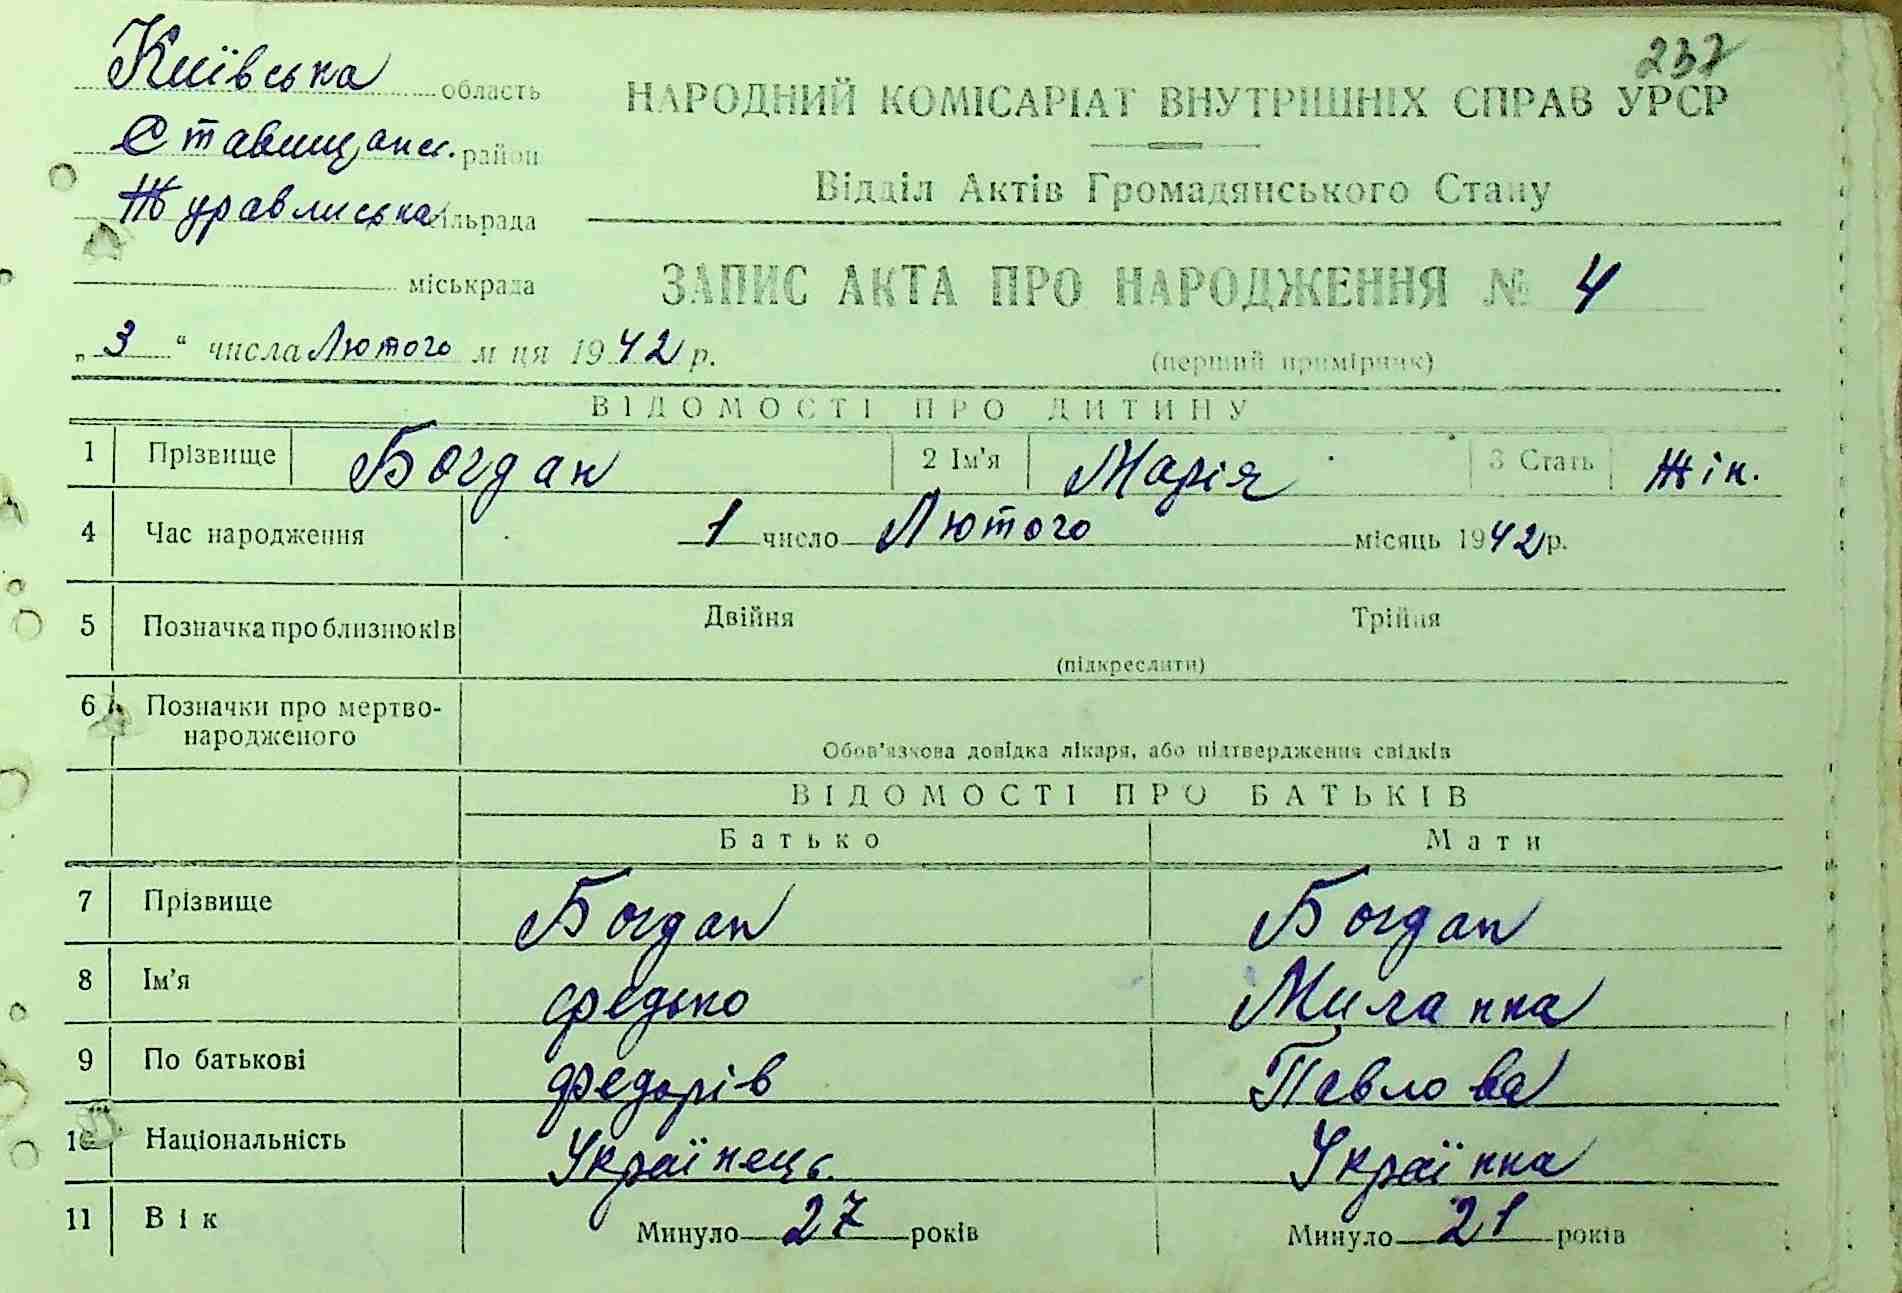 237
Київська область
Ставищанс. район
Журавлиська сільрада
міськрада
НАРОДНИЙ КОМІСАРІАТ ВНУТРІШНІХ СПРАВ УРСР
Відділ Актів Громадянського Стану
ЗАПИС АКТА ПРО НАРОДЖЕННЯ № 4
„3“ числа Лютого м ця 1942 р.
(перший примірник)
ВІДОМОСТІ ПРО ДИТИНУ
1 Прізвище Богдан 2 Ім'я Марія 3 Стать Жін.
4 Час народження 1 число Лютого місяць 1942 р.
5 Позначка про близнюків Двійня Трійня
(підкреслити)
6 Позначки про мертво-
народженого
Обов'язкова довідка лікаря, або підтвердження свідків
ВІДОМОСТІ ПРО БАТЬКІВ
Батько Мати
7 Прізвище Богдан Богдан
8 Ім'я Федько Миланка
9 По батькові Федорів Павлова
10 Національність Українець Українка
11 Вік Минуло 27 років Минуло 21 років